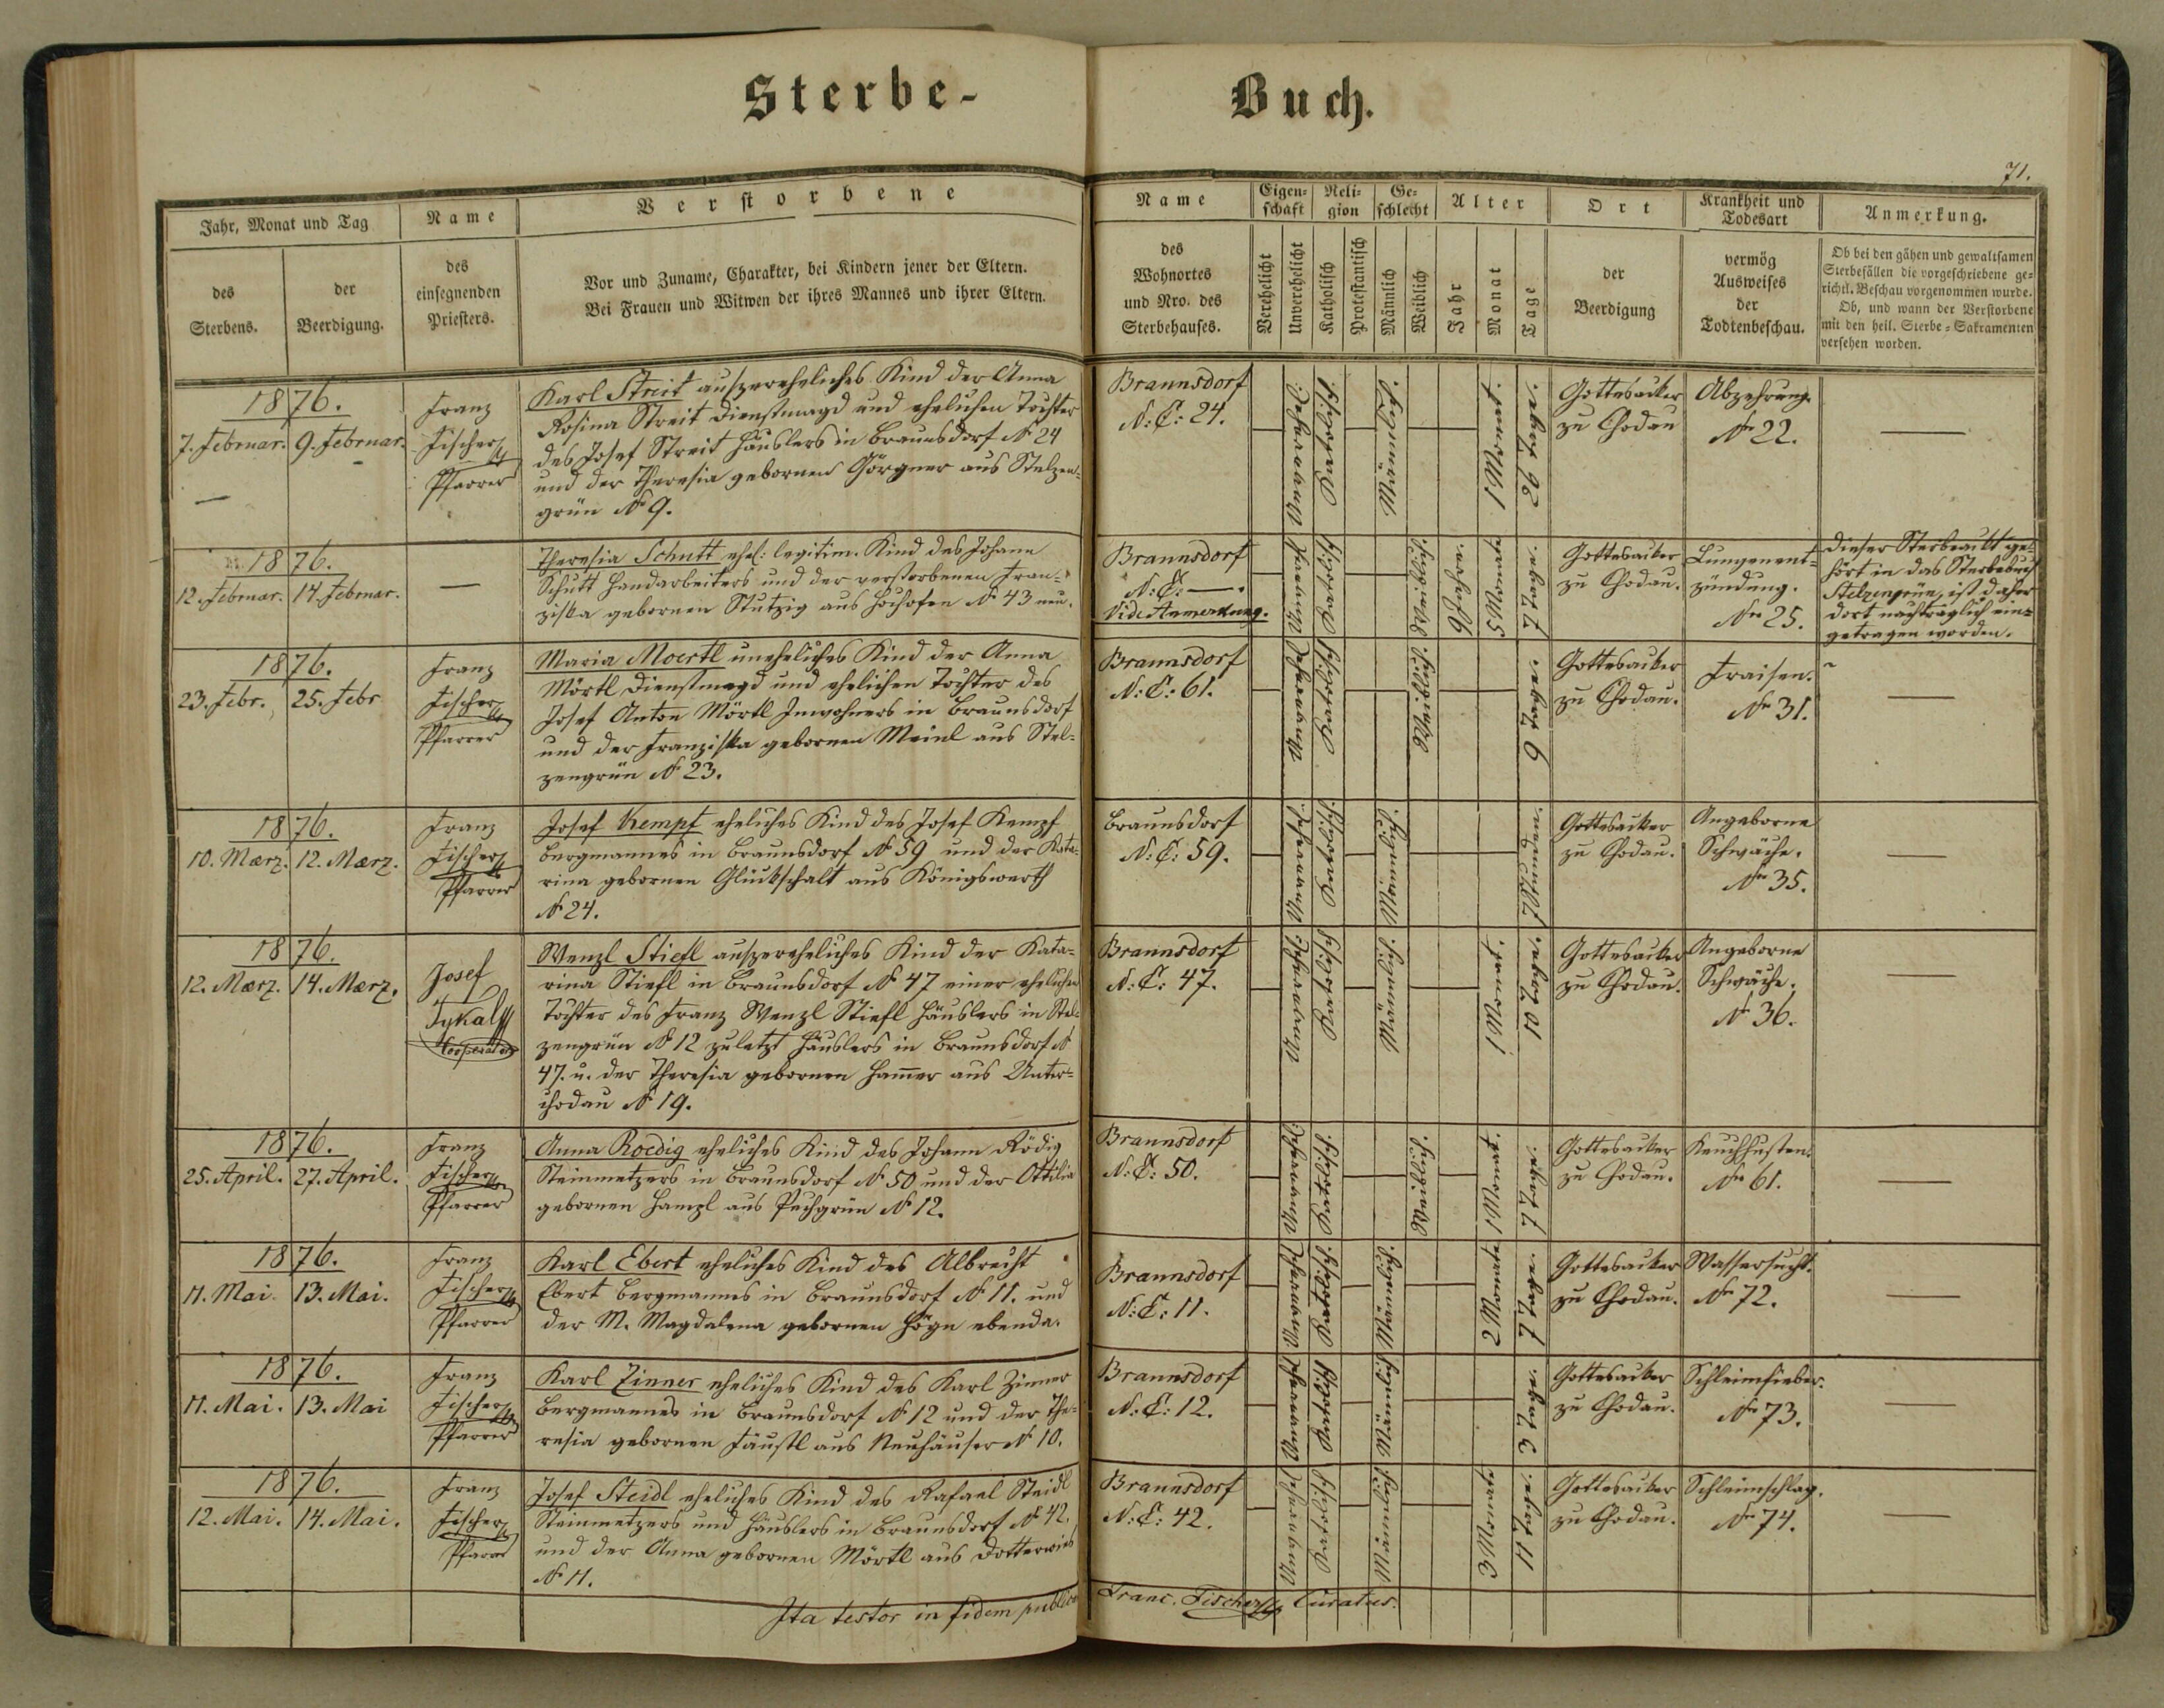 Sterbe-Buch.
71.
Jahr, Monat und Tag
des Sterbens.
der Beerdigung.
Name
des
einsegnenden
Priesters.
Verstorbene
Vor und Zuname, Charakter, bei Kindern jener der Eltern.
Bei Frauen und Witwen der ihres Mannes und ihrer Eltern.
Name
des
Wohnortes
und Nro. des
Sterbehauses.
Eigen-
schaft
Verehelicht
Unverehelicht
Reli-
gion
Katholisch
Protestantisch
Ge-
schlecht
Männlich
Weiblich
Alter
Jahr
Monat
Tage
Ort
der
Beerdigung
Krankheit und
Todesart
vermög
Ausweises
der
Todtenbeschau.
Anmerkung.
Ob bei den gähen und gewaltsamen
Sterbefällen die vorgeschriebene ge-
richtl. Beschau vorgenommen wurde.
Ob, und wann der Verstorbene
mit den heil. Sterbe-Sakramenten
versehen worden.
1876.
7. Februar. 9. Februar.
Franz
Fischer
Pfarrer
Karl Streit außereheliches Kind der Anna
Rosina Streit Dienstmagd und ehelichen Tochter
des Josef Streit Häuslers in Braunsdorf N° 24
und der Theresia gebornen Görgner aus Stelzen-
grün N° 9.
Braunsdorf
N: C: 24.
Unverehelicht
Katholisch
Männlich
1 Monat.
26 Tage.
Gottesacker
zu Chodau
Abzehrung.
Nr 22.
1876.
12. Februar. 14. Februar.
Theresia Schutt ehel: legitim. Kind des Johann
Schutt Handarbeiters und der verstorbenen Fran-
ziska gebornen Stutzig aus Hochofen N° 43 neu.
Braunsdorf
N: C: —.
Vide Anmerkung.
Unverehelicht
Katholisch
Weiblich
6 Jahre.
5 Monate
7 Tage.
Gottesacker
zu Chodau.
Lungenent-
zündung.
Nr 25.
Dieser Sterbeakt ge-
hört in das Sterbebuch
Stelzengrün, ist daher
dort nachträglich ein-
getragen worden.
1876.
23. Febr. 25. Febr
Franz
Fischer
Pfarrer
Maria Moertl uneheliches Kind der Anna
Mörtl Dienstmagd und ehelichen Tochter des
Josef Anton Mörtl Inwohners in Braunsdorf
und der Franziska gebornen Meinl aus Stel-
zengrün N° 23.
Braunsdorf
N: C: 61.
Unverehelicht
Katholisch
Weiblich
9 Tage.
Gottesacker
zu Chodau.
Fraisen.
Nr 31.
1876.
10. Mærz. 12. Mærz.
Franz
Fischer
Pfarrer
Josef Kempf eheliches Kind des Josef Kempf
Bergmannes in Braunsdorf N° 59 und der Kata-
rina gebornen Glückschalt aus Königswerth
N° 24.
Braunsdorf
N: C: 59.
Unverehelicht
Katholisch
Männlich
7 Stunden.
Gottesacker
zu Chodau.
Angeborne
Schwäche.
Nr 35.
1876.
12. Mærz. 14. Mærz.
Josef
Tykal
Cooperator
Wenzl Stiefl außereheliches Kind der Kata-
rina Stiefl in Braunsdorf N° 47 einer ehelichen
Tochter des Franz Wenzl Stiefl Häuslers in Stel-
zengrün N° 12 zuletzt Häuslers in Braunsdorf N°
47. u. der Theresia gebornen Hammer aus Unter-
chodau N° 19.
Braunsdorf
N: C: 47.
Unverehelicht
Katholisch
Männlich
1 Monat.
10 Tage.
Gottesacker
zu Chodau.
Angeborne
Schwäche.
Nr 36.
1876.
25. April. 27. April.
Franz
Fischer
Pfarrer
Anna Roedig eheliches Kind des Johann Rödig
Steinmetzers in Braunsdorf N° 50 und der Ottilia
gebornen Hampl aus Puchgrün N° 12.
Braunsdorf
N: C: 50.
Unverehelicht
Katholisch
Weiblich
1 Monat.
7 Tage.
Gottesacker
zu Chodau.
Keuchhusten.
Nr 61.
1876.
11. Mai. 13. Mai.
Franz
Fischer
Pfarrer
Karl Ebert eheliches Kind des Albrecht
Ebert Bergmannes in Braunsdorf N° 11. und
der M. Magdalena gebornen Högn ebenda.
Braunsdorf
N: C: 11.
Unverehelicht
Katholisch
Männlich
2 Monate
7 Tage.
Gottesacker
zu Chodau.
Wassersucht.
Nr 72.
1876.
11. Mai. 13. Mai
Franz
Fischer
Pfarrer
Karl Zinner eheliches Kind des Karl Zinner
Bergmannes in Braunsdorf N° 12 und der The-
resia gebornen Fäustl aus Neuhäuser N° 10.
Braunsdorf
N: C: 12.
Unverehelicht
Katholisch
Männlich
3 Tage.
Gottesacker
zu Chodau.
Schleimfieber.
Nr 73.
1876.
12. Mai. 14. Mai.
Franz
Fischer
Pfarrer
Josef Steidl eheliches Kind des Rafael Steidl
Steinmetzers und Häuslers in Braunsdorf N° 42.
und der Anna gebornen Mörtl aus Dotterwies
N° 11.
Braunsdorf
N: C: 42.
Unverehelicht
Katholisch
Männlich
3 Monate
11 Tage.
Gottesacker
zu Chodau.
Schleimschlag.
Nr 74.
Ita testor in fidem publicam Franc. Fischer Curatus.